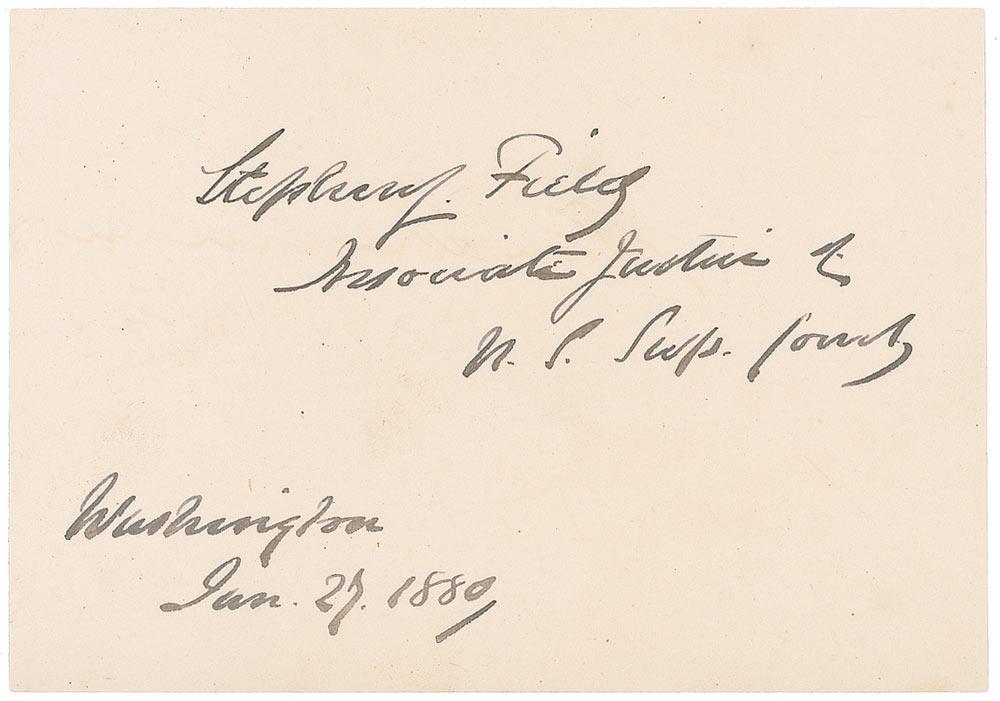 Stephen J. Field
Associate Justice of
U. S. Sup. Court
Washington
Jan. 27. 1880